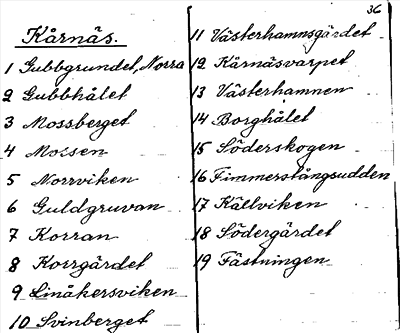 36
Kårnäs.
1 Gubbgrundet, Norra
2 Gubbhålet
3 Mossberget
4 Mossen
5 Norrviken
6 Guldgruvan
7 Korran
8 Korrgärdet
9 Linåkersviken
10 Svinberget
11 Västerhamnsgärdet
12 Kärnäsvarpet
13 Västerhamnen
14 Borghålet
15 Söderskogen
16 Fimmerstångsudden
17 Källviken
18 Södergärdet
19 Fästningen